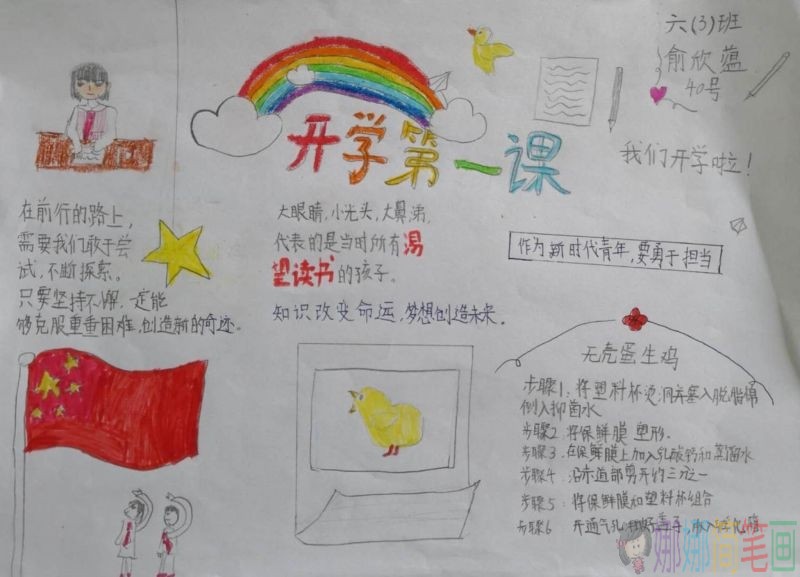 六(3)班
俞欣蕴
40号
开学第一课
我们开学啦!
在前行的路上,
需要我们敢于尝
试,不断探索。
只要坚持不懈,一定能
够克服重重困难,创造新的奇迹。
大眼睛,小光头,大鼻涕,
代表的是当时所有渴
望读书的孩子。
知识改变命运,梦想创造未来。
作为新时代青年,要勇于担当
无壳蛋生鸡
步骤1:将塑料杯烫洞并塞入脱脂棉
倒入抑菌水
步骤2:将保鲜膜塑形.
步骤3:在保鲜膜上加入乳酸钙和蒸馏水
步骤4:沿赤道部剪开约三分之一
步骤5:将保鲜膜和塑料杯组合
步骤6 开通气孔
娜娜简笔画